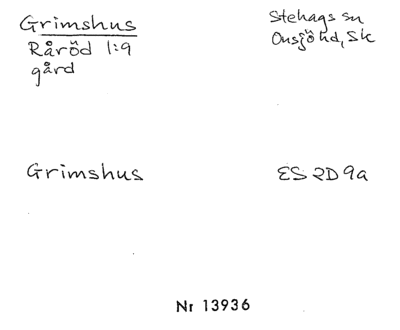 Grimshus
Råröd 1:9
gård
Stehags sn
Onsjö hd, Sk
Grimshus
ES 2D 9a
Nr 13936